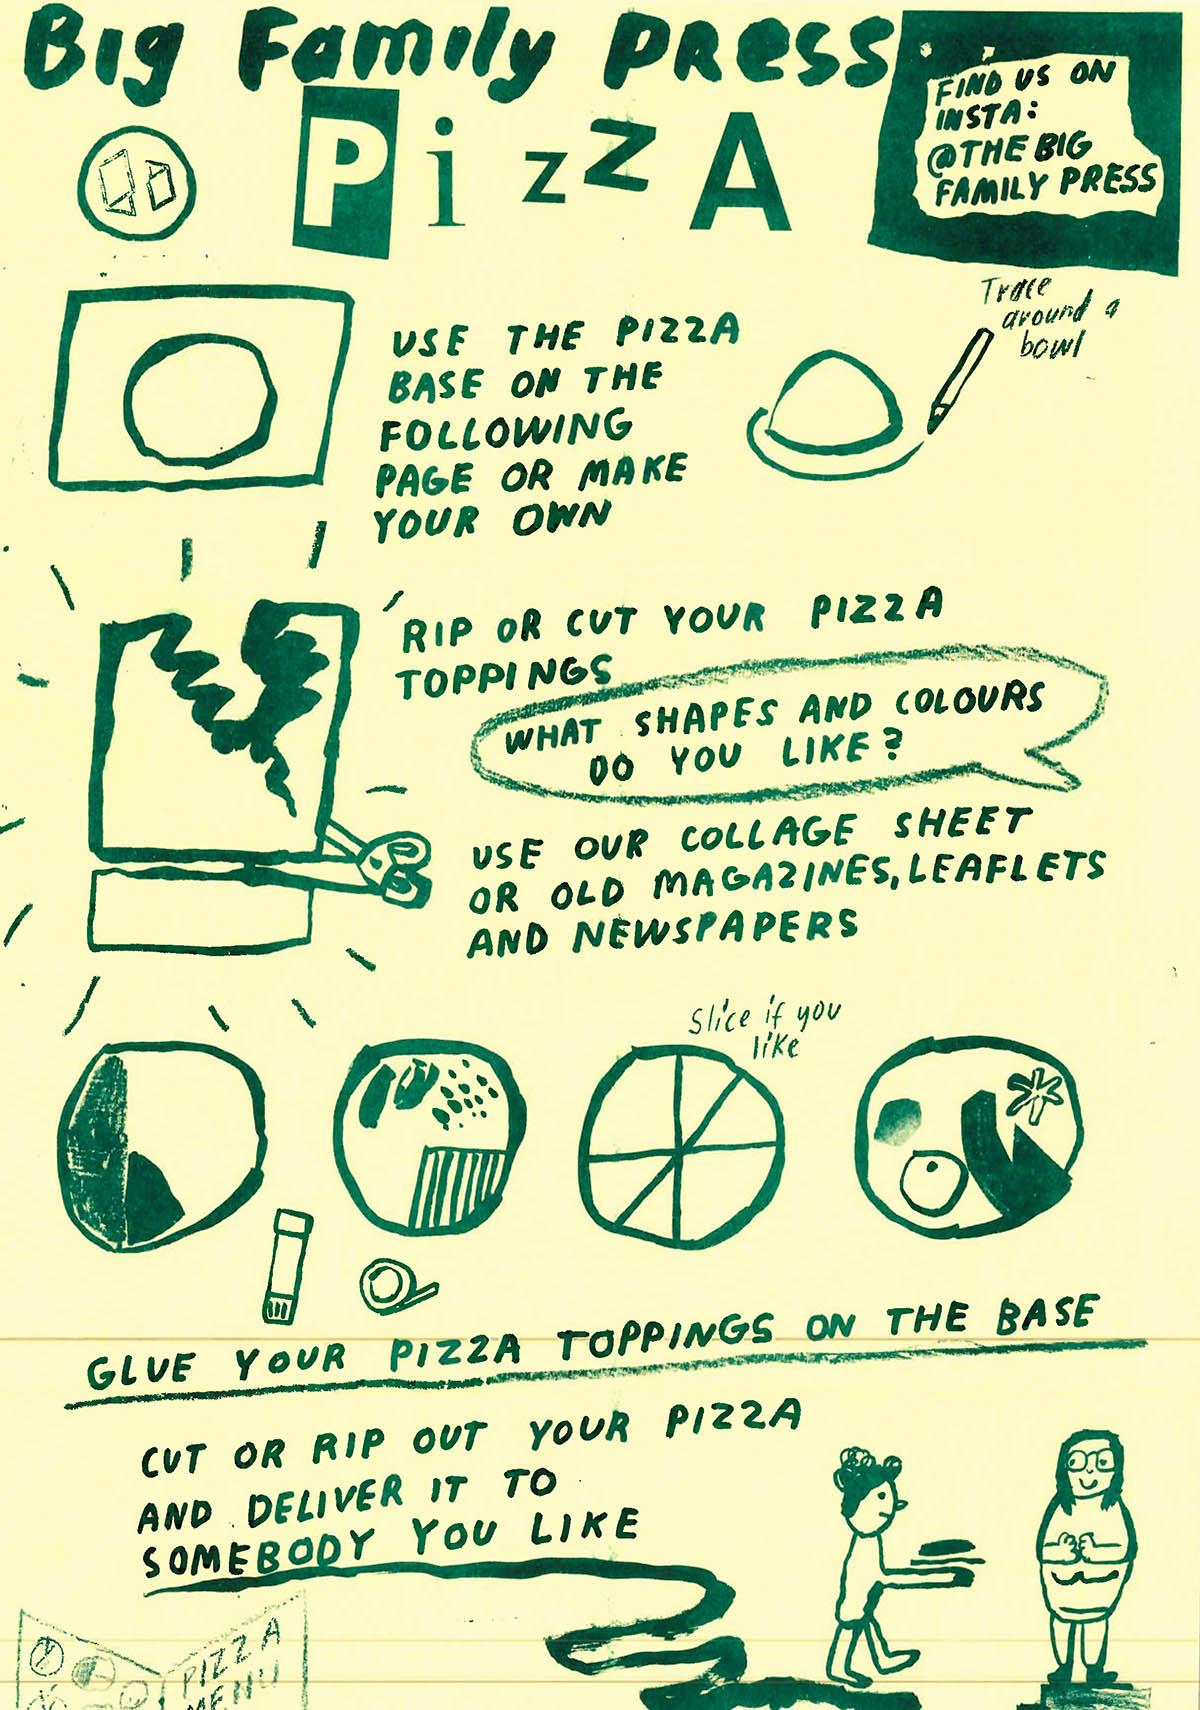 Big Family PRESS
PizzA
FIND US ON
INSTA:
@THE BIG
FAMILY PRESS
Trace
around a
bowl
USE THE PIZZA
BASE ON THE
FOLLOWING
PAGE OR MAKE
YOUR OWN
RIP OR CUT YOUR PIZZA
TOPPINGS
WHAT SHAPES AND COLOURS
DO YOU LIKE?
USE OUR COLLAGE SHEET
OR OLD MAGAZINES, LEAFLETS
AND NEWSPAPERS
Slice if you
like
GLUE YOUR PIZZA TOPPINGS ON THE BASE
CUT OR RIP OUT YOUR PIZZA
AND DELIVER IT TO
SOMEBODY YOU LIKE
PIZZA
MENU